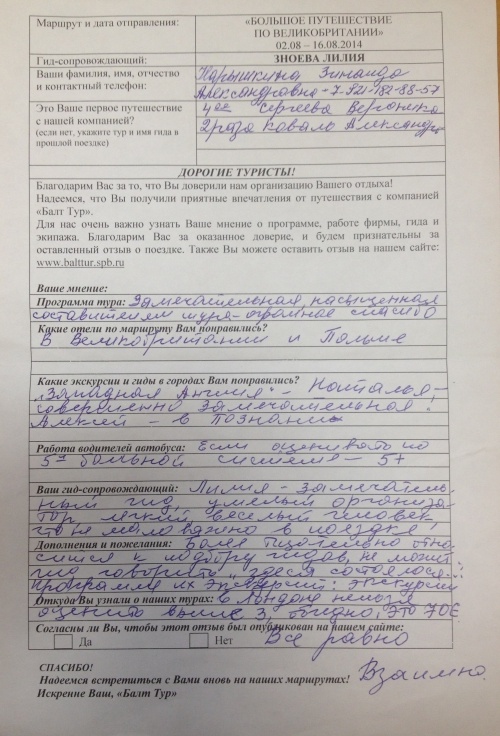 Маршрут и дата отправления:
«БОЛЬШОЕ ПУТЕШЕСТВИЕ
ПО ВЕЛИКОБРИТАНИИ»
02.08 – 16.08.2014
Гид-сопровождающий:
ЗНОЕВА ЛИЛИЯ
Ваши фамилия, имя, отчество
и контактный телефон:
Нарышкина Зинаида
Александровна - 7-921-182-88-57
Это Ваше первое путешествие
с нашей компанией?
(если нет, укажите тур и имя гида в
прошлой поездке)
4ое Сергеева Вероника
2 раза Коваль Александра
ДОРОГИЕ ТУРИСТЫ!
Благодарим Вас за то, что Вы доверили нам организацию Вашего отдыха!
Надеемся, что Вы получили приятные впечатления от путешествия с компанией
«Балт Тур».
Для нас очень важно узнать Ваше мнение о программе, работе фирмы, гида и
экипажа. Благодарим Вас за оказанное доверие, и будем признательны за
оставленный отзыв о поездке. Также Вы можете оставить отзыв на нашем сайте:
www.balttur.spb.ru
Ваше мнение:
Программа тура: Замечательная, насыщенная
составителям тура - огромное спасибо
Какие отели по маршруту Вам понравились?
В Великобритании и Польше
Какие экскурсии и гиды в городах Вам понравились?
"Западная Англия" - Наталья -
совершенно замечательная!
Алексей - в Познани
Работа водителей автобуса: Если оценивать по
5ти бальной системе - 5+
Ваш гид-сопровождающий: Лилия - замечатель-
ный гид, умелый организа-
тор, легкий веселый человек
что не маловажно в поездке!
Дополнения и пожелания: Более тщательно отно-
ситься к подбору гидов, не может
гид говорить "здесь состоялось"
Программа их экскурсий: экскурсии
Откуда Вы узнали о наших турах: в Лондоне нельзя
оценить выше 3, обидно, это 70€
Согласны ли Вы, чтобы этот отзыв был опубликован на нашем сайте:
Да Нет Все равно
СПАСИБО!
Надеемся встретиться с Вами вновь на наших маршрутах! Взаимно.
Искренне Ваш, «Балт Тур»